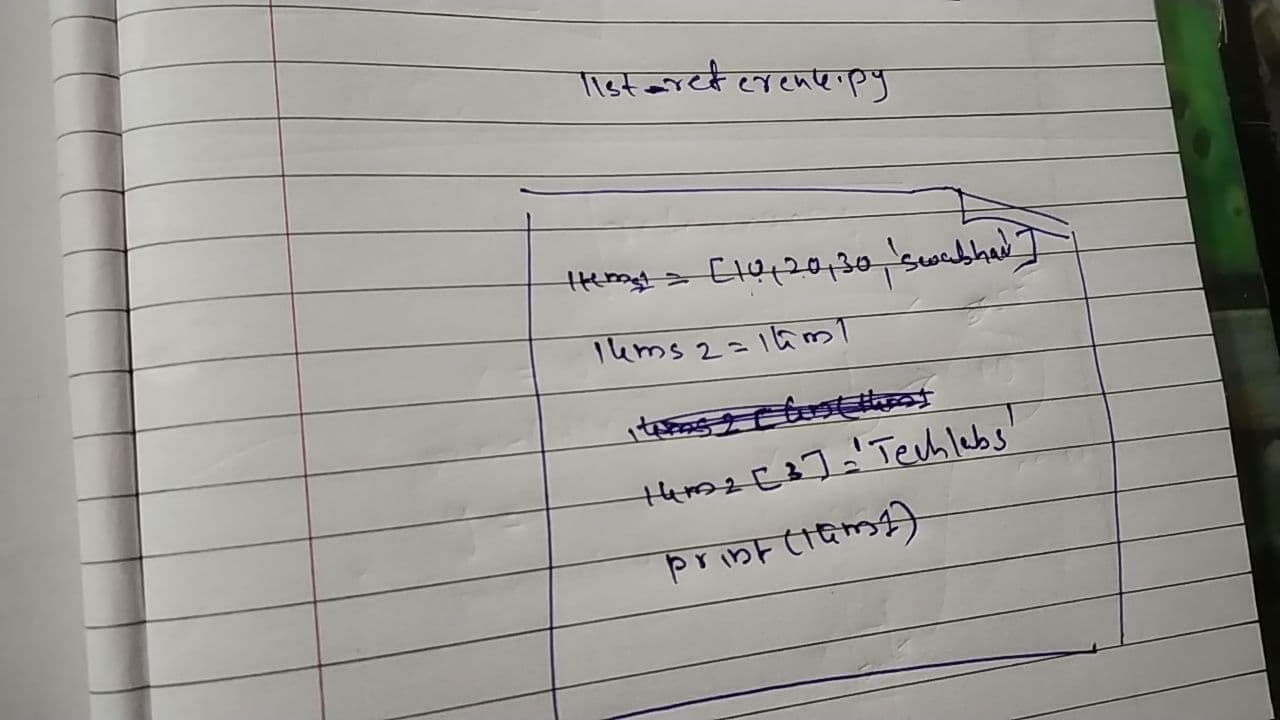 list-reference.py
items1 = [10,20,30,'swabhav']
items2 = item1
item2[3] = 'Techlabs'
print(item1)